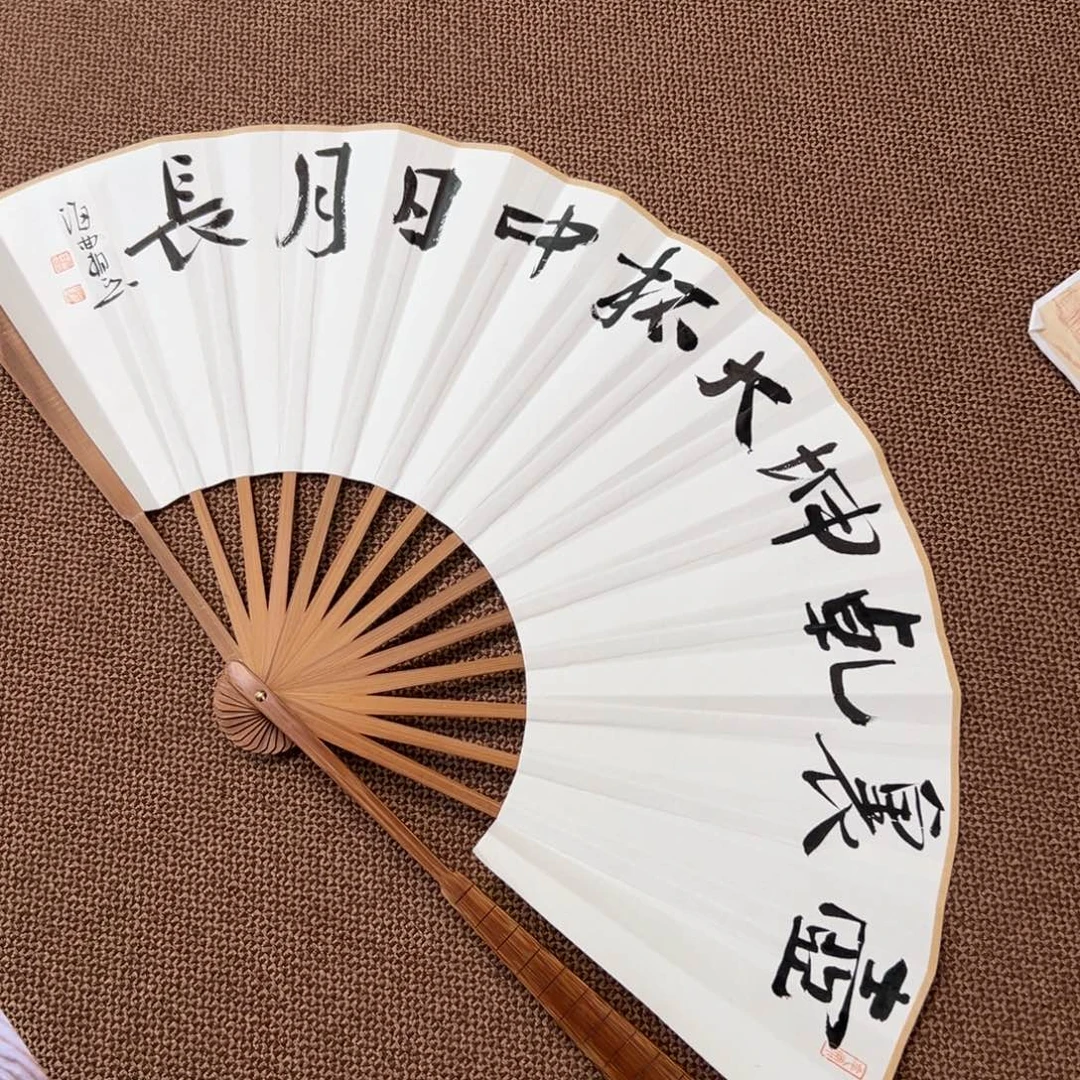 壺裏乾坤大杯中日月長